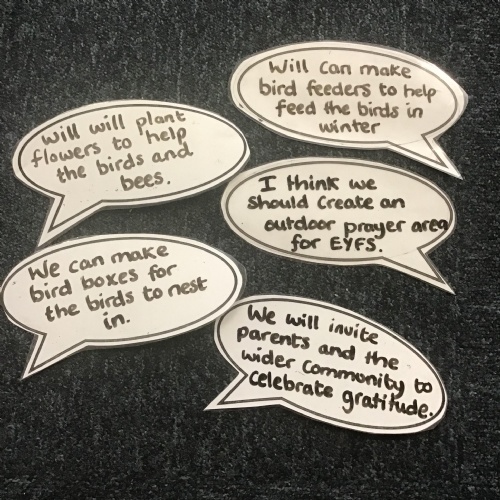 Will can make
bird feeders to help
feed the birds in
winter
Will will plant
flowers to help
the birds and
bees.
I think we
should create an
outdoor prayer area
for EYFS.
We can make
bird boxes for
the birds to nest
in.
We will invite
parents and the
wider community to
celebrate gratitude.